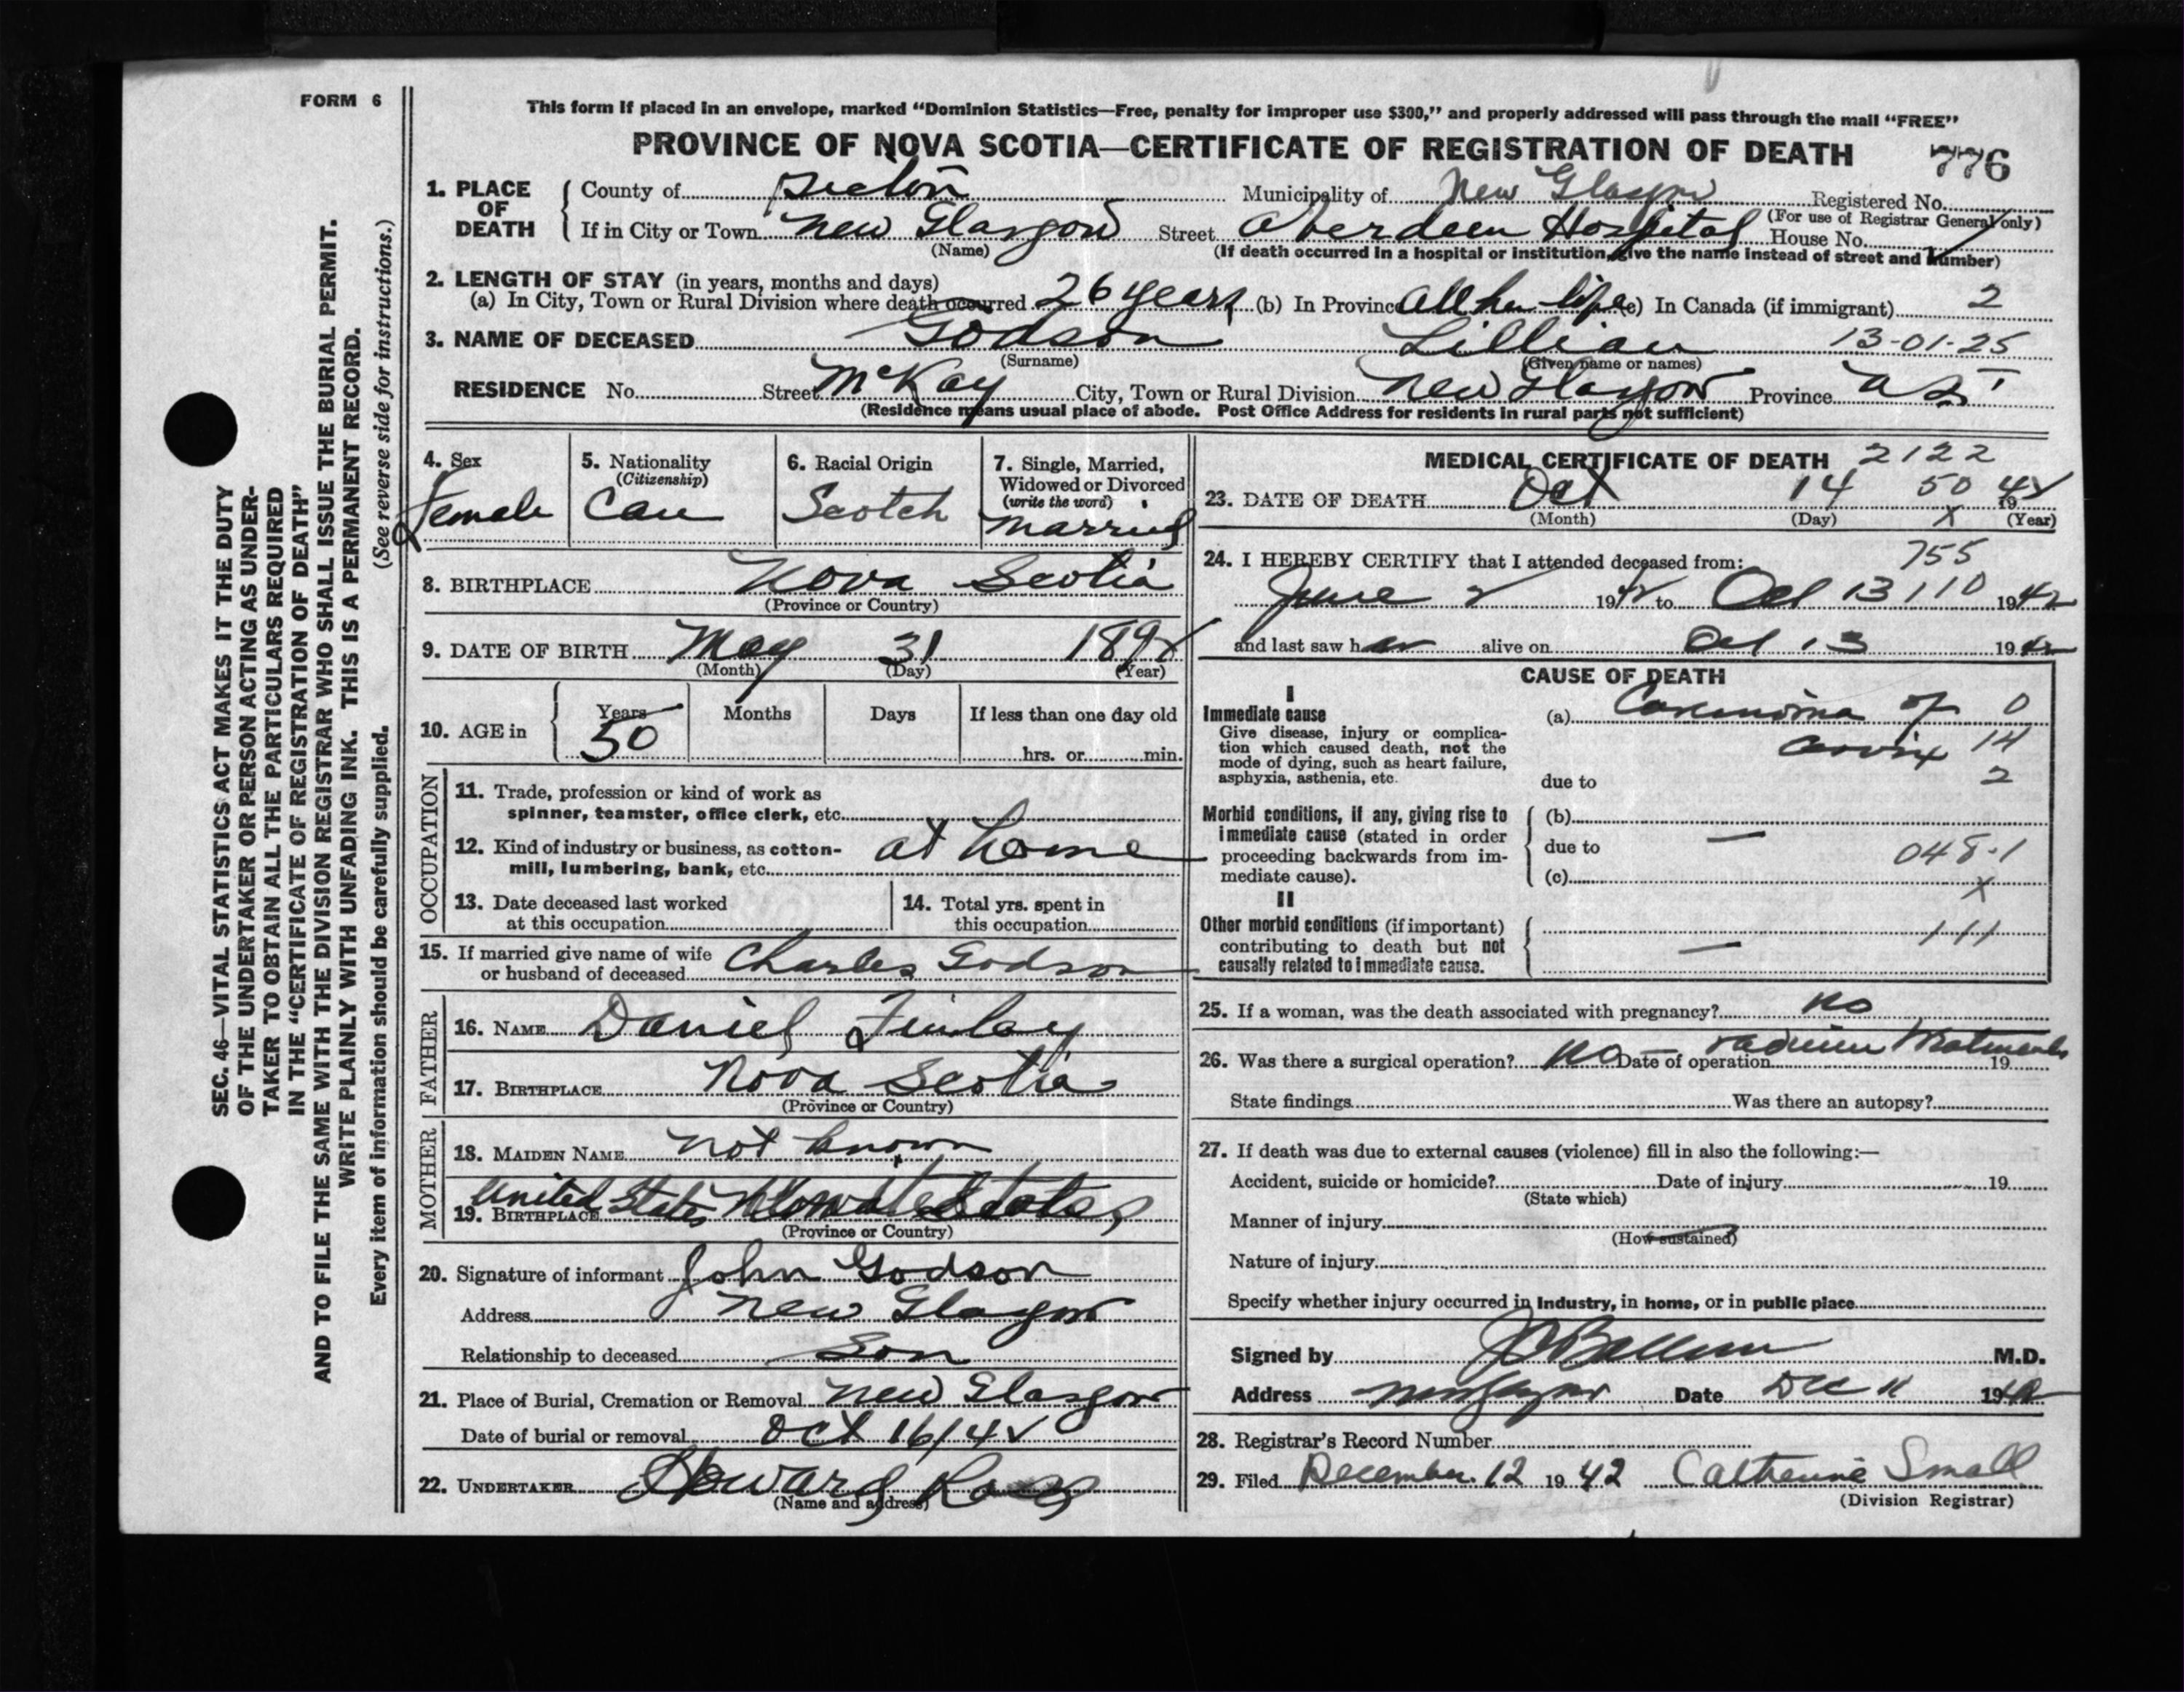 FORM 6
This form if placed in an envelope, marked “Dominion Statistics—Free, penalty for improper use $300,” and properly addressed will pass through the mail “FREE”
PROVINCE OF NOVA SCOTIA—CERTIFICATE OF REGISTRATION OF DEATH 776
1. PLACE OF DEATH
County of Pictou Municipality of New Glasgow Registered No.
(For use of Registrar General only)
If in City or Town New Glasgow Street Aberdeen Hospital House No.
(Name) (If death occurred in a hospital or institution, give the name instead of street and number)
2. LENGTH OF STAY (in years, months and days)
(a) In City, Town or Rural Division where death occurred 26 years (b) In Province All her life (c) In Canada (if immigrant) 2
3. NAME OF DECEASED Godson Lillian 13-01-25
(Surname) (Given name or names)
RESIDENCE No. Street McKay City, Town or Rural Division New Glasgow Province N S
(Residence means usual place of abode. Post Office Address for residents in rural parts not sufficient)
4. Sex
Female
5. Nationality
(Citizenship)
Can
6. Racial Origin
Scotch
7. Single, Married,
Widowed or Divorced
(write the word)
Married
8. BIRTHPLACE Nova Scotia
(Province or Country)
9. DATE OF BIRTH May 31 1892
(Month) (Day) (Year)
10. AGE in
Years Months Days If less than one day old
50 hrs. or min.
OCCUPATION
11. Trade, profession or kind of work as
spinner, teamster, office clerk, etc.
12. Kind of industry or business, as cotton- at home
mill, lumbering, bank, etc.
13. Date deceased last worked
at this occupation
14. Total yrs. spent in
this occupation
15. If married give name of wife
or husband of deceased Charles Godson
FATHER
16. NAME Daniel Finlay
17. BIRTHPLACE Nova Scotia
(Province or Country)
MOTHER
18. MAIDEN NAME not known
19. BIRTHPLACE United States
(Province or Country)
20. Signature of informant John Godson
Address New Glasgow
Relationship to deceased Son
21. Place of Burial, Cremation or Removal New Glasgow
Date of burial or removal Oct 16/42
22. UNDERTAKER Howard Ross
(Name and address)
MEDICAL CERTIFICATE OF DEATH 2122
23. DATE OF DEATH Oct 14 50 1942
(Month) (Day) X (Year)
24. I HEREBY CERTIFY that I attended deceased from: 755
June 2 1942 to Oct 13 110 1942
and last saw her alive on Oct 13 1942
CAUSE OF DEATH
I
Immediate cause
Give disease, injury or complica-
tion which caused death, not the
mode of dying, such as heart failure,
asphyxia, asthenia, etc.
(a) Carcinoma of 0
cervix 14
due to 2
Morbid conditions, if any, giving rise to
immediate cause (stated in order
proceeding backwards from im-
mediate cause).
(b)
due to — 048-1
(c) X
II
Other morbid conditions (if important)
contributing to death but not
causally related to immediate cause.
111
—
25. If a woman, was the death associated with pregnancy? no
26. Was there a surgical operation? no — Date of operation radium treatments 19
State findings Was there an autopsy?
27. If death was due to external causes (violence) fill in also the following:—
Accident, suicide or homicide? Date of injury 19
(State which)
Manner of injury
(How sustained)
Nature of injury
Specify whether injury occurred in Industry, in home, or in public place
Signed by M.D.
Address New Glasgow Date Dec 11 1942
28. Registrar's Record Number
29. Filed December 12 1942 Catherine Small
(Division Registrar)
SEC. 46—VITAL STATISTICS ACT MAKES IT THE DUTY
OF THE UNDERTAKER OR PERSON ACTING AS UNDER-
TAKER TO OBTAIN ALL THE PARTICULARS REQUIRED
IN THE “CERTIFICATE OF REGISTRATION OF DEATH”
AND TO FILE THE SAME WITH THE DIVISION REGISTRAR WHO SHALL ISSUE THE BURIAL PERMIT.
WRITE PLAINLY WITH UNFADING INK. THIS IS A PERMANENT RECORD.
Every item of information should be carefully supplied. (See reverse side for instructions.)